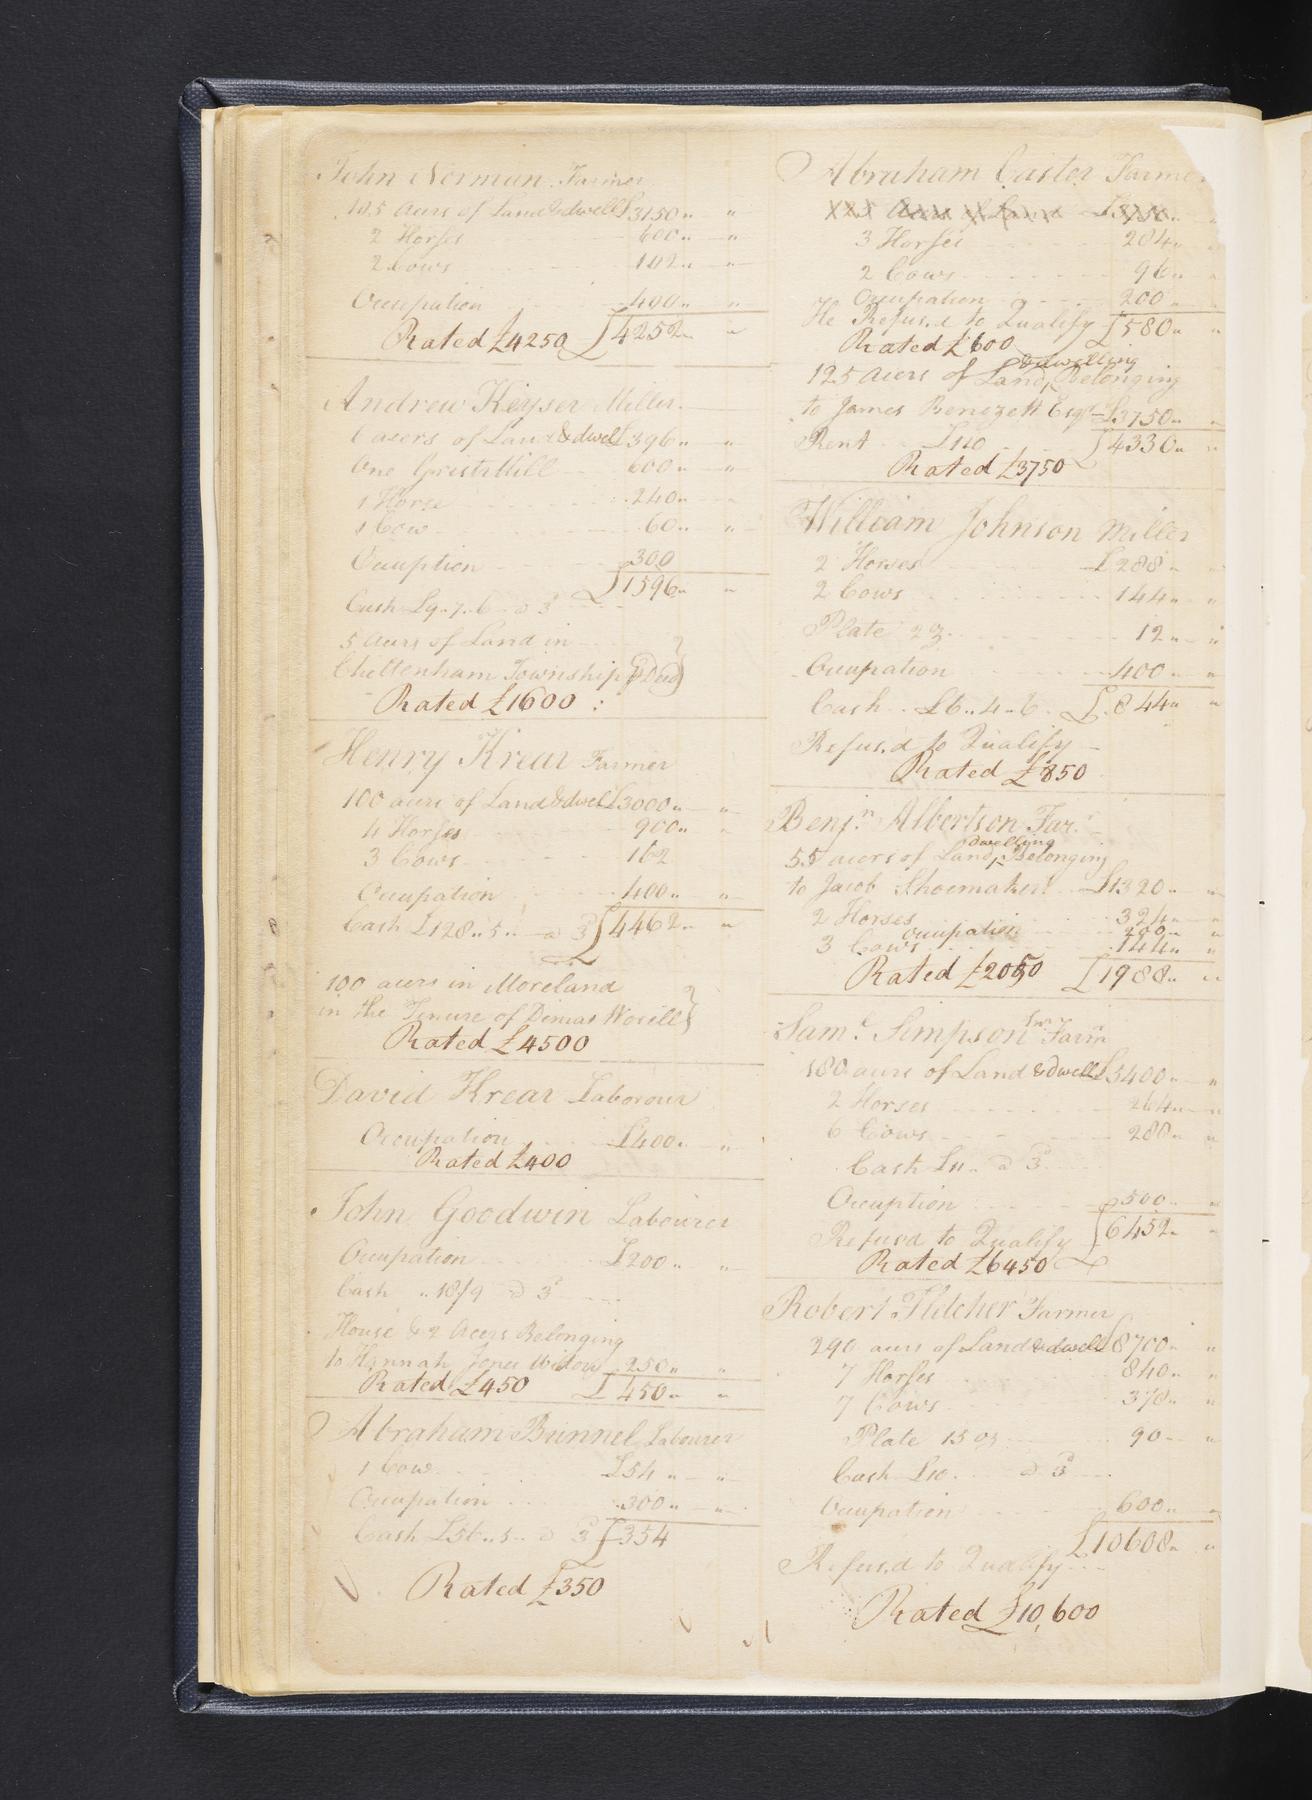 John Norman Farmer
105 Acers of Land & dwell £3150 " "
2 Horses 600 " "
2 Cows 102 " "
Occupation 400 " "
Rated £4250 £4252 " "
Andrew Keyser Miller
acers of Land & dwel £396 " "
One Grist Mill 600 " "
1 Horse 240 "
1 Cow 60 " "
Occuption 300
£1596 " "
Cash £9.7.6 a 3
5 acers of Land in
Cheltenham Township
Rated £1600 :
Henry Krear Farmer
100 acers of Land & dwel £3000 " "
4 Horses 900 " "
3 Cows 162
Occupation 400 " "
Cash £128 .. 5 .. a 3 £4462 " "
100 acers in Moreland
in the Tenure of Worell
Rated £4500
David Krear Laborour
Occupation £400 " "
Rated £400
John Goodwin Labourer
Occupation £200 " "
Cash .. 18/9 a 3
House & 2 Acers Belonging
to Hannah Jones Widow 250 " "
Rated £450 £450 " "
Abraham Bunnel Labourer
1 Cow £54 " "
Occupation 300 " "
Cash £56 .. 5 .. a 3 £354
Rated £350
Abraham Caster Farmer
125 Acers of Land £3750 "
3 Horses 284 "
2 Cows 96 " "
Occupation 200 "
He Refus.d to Qualify £580 " "
Rated £600
& dwelling
125 acers of Land, Belonging
to James Benezett Esqr £3750 " "
Rent £110 £4330 " "
Rated £3750
William Johnson Miller
2 Horses £288 "
2 Cows 144 " "
Plate 2 oz 12 " "
Occupation 400 " "
Cash .. £6 .. 4 .. 6 £844 " "
Refus.d to Qualify
Rated £850
Benj.n Albertson Far.
dwelling
55 acers of Land, Belonging
to Jacob Shoemaker £1320 " "
2 Horses 324 " "
Occupation 200 " "
3 Cows 144 " "
Rated £2050 £1988 " "
Sam.l Simpson Farm
180 acers of Land & dwell £5400 " "
2 Horses 264 " "
6 Cows 288 " "
Cash £11 .. a 3
Occuption 500 " "
Refusd to Qualify £6452 " "
Rated £6450
Robert Fletcher Farmer
290 acers of Land & dwell £8700 " "
7 Horses 840 " "
7 Cows 378 " "
Plate 15 oz 90 " "
Cash £10 .. a 3
Occupation 600 " "
£10608 " "
Refus.d to Qualify
Rated £10,600